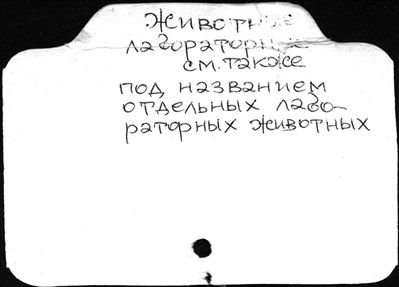 Животные
лабораторные
см. также
под названием
отдельных лабо-
раторных животных